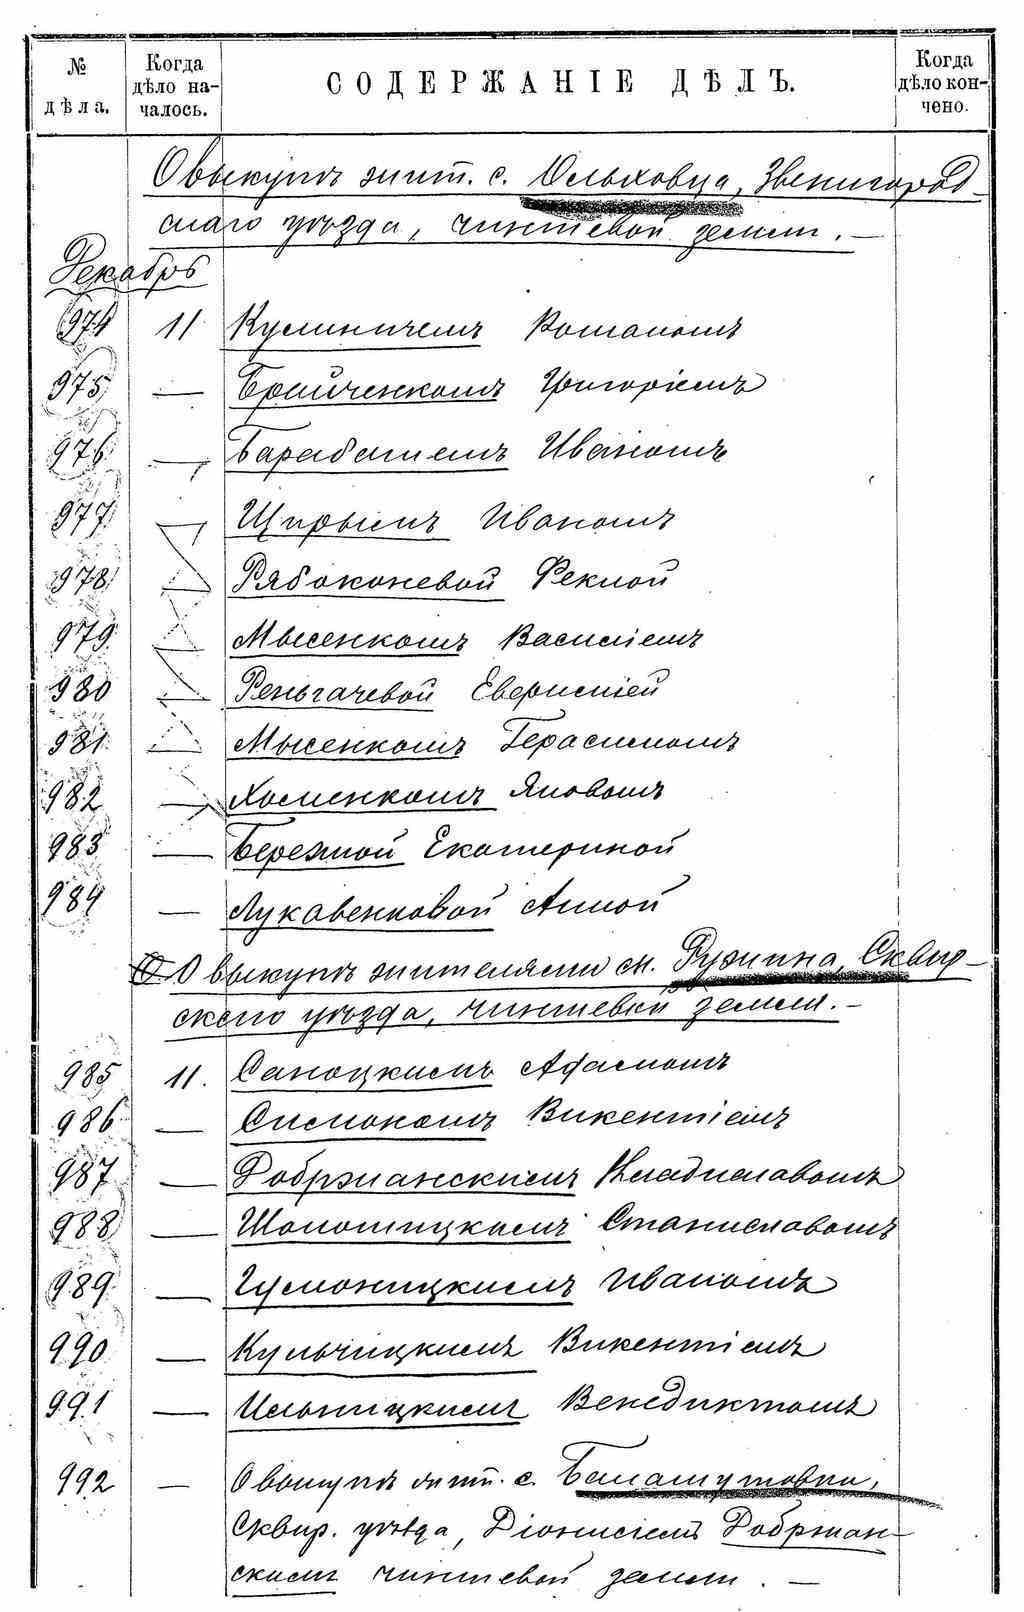 № дѣла.
Когда дѣло началось.
СОДЕРЖАНІЕ ДѢЛЪ.
Когда дѣло кончено.
О выкупѣ жит. с. Ольховца, Звенигород-
скаго уѣзда, чиншевой земли. —
Декабрь
974 11 Кулиничемъ Романомъ
975 — Брайченкомъ Григоріемъ
976 — Барабашемъ Иваномъ
977 — Щирымъ Иваномъ
978 — Рябоконевой Феклой
979 — Мысенкомъ Василіемъ
980 — Реньгачевой
981 — Мысенкомъ Герасимомъ
982 — Хоменкомъ Яковомъ
983 — Бережной Екатериной
984 — Лукавенковой Анной
О выкупѣ жителями м. Ружина, Сквир-
скаго уѣзда, чиншевой земли. —
985 11. Саноцкимъ Адамомъ
986 — Симономъ Викентіемъ
987 — Добржанскимъ Владиславомъ
988 — Станиславомъ
989 — Иваномъ
990 — Кульчицкимъ Викентіемъ
991 — Ильницкимъ Венедиктомъ
992 — О выкупѣ жит. с. Балашутовки,
Сквир. уѣзда, Діонисіемъ Добржан-
скимъ чиншевой земли. —